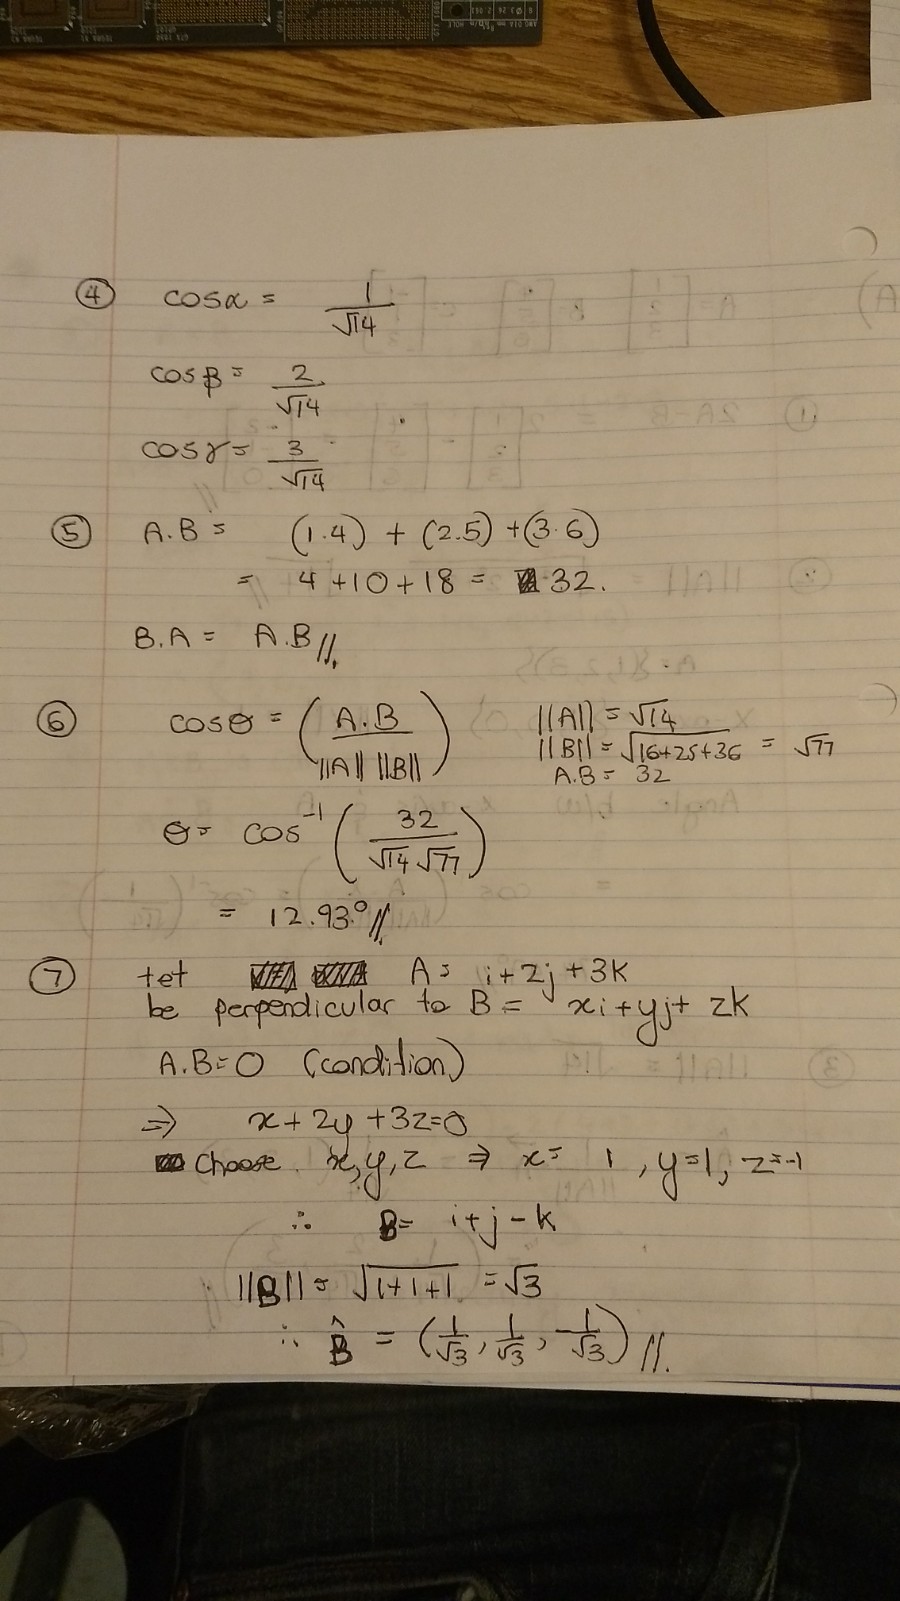 ④ cosα = 1/√14
cosβ = 2/√14
cosγ = 3/√14
⑤ A.B = (1.4) + (2.5) + (3.6)
= 4+10+18 = 32.
B.A = A.B //.
⑥ cosθ = (A.B / ||A|| ||B||)
||A|| = √14
||B|| = √16+25+36 = √77
A.B = 32
θ = cos⁻¹ (32 / √14 √77)
= 12.93° //
⑦ let A = i+2j+3k
be perpendicular to B = xi+yj+zk
A.B=0 (condition)
⇒ x+2y+3z=0
Choose. x,y,z ⇒ x= 1, y=1, z=-1
∴ B= i+j-k
||B|| = √1+1+1 = √3
∴ B̂ = (1/√3, 1/√3, -1/√3) //.